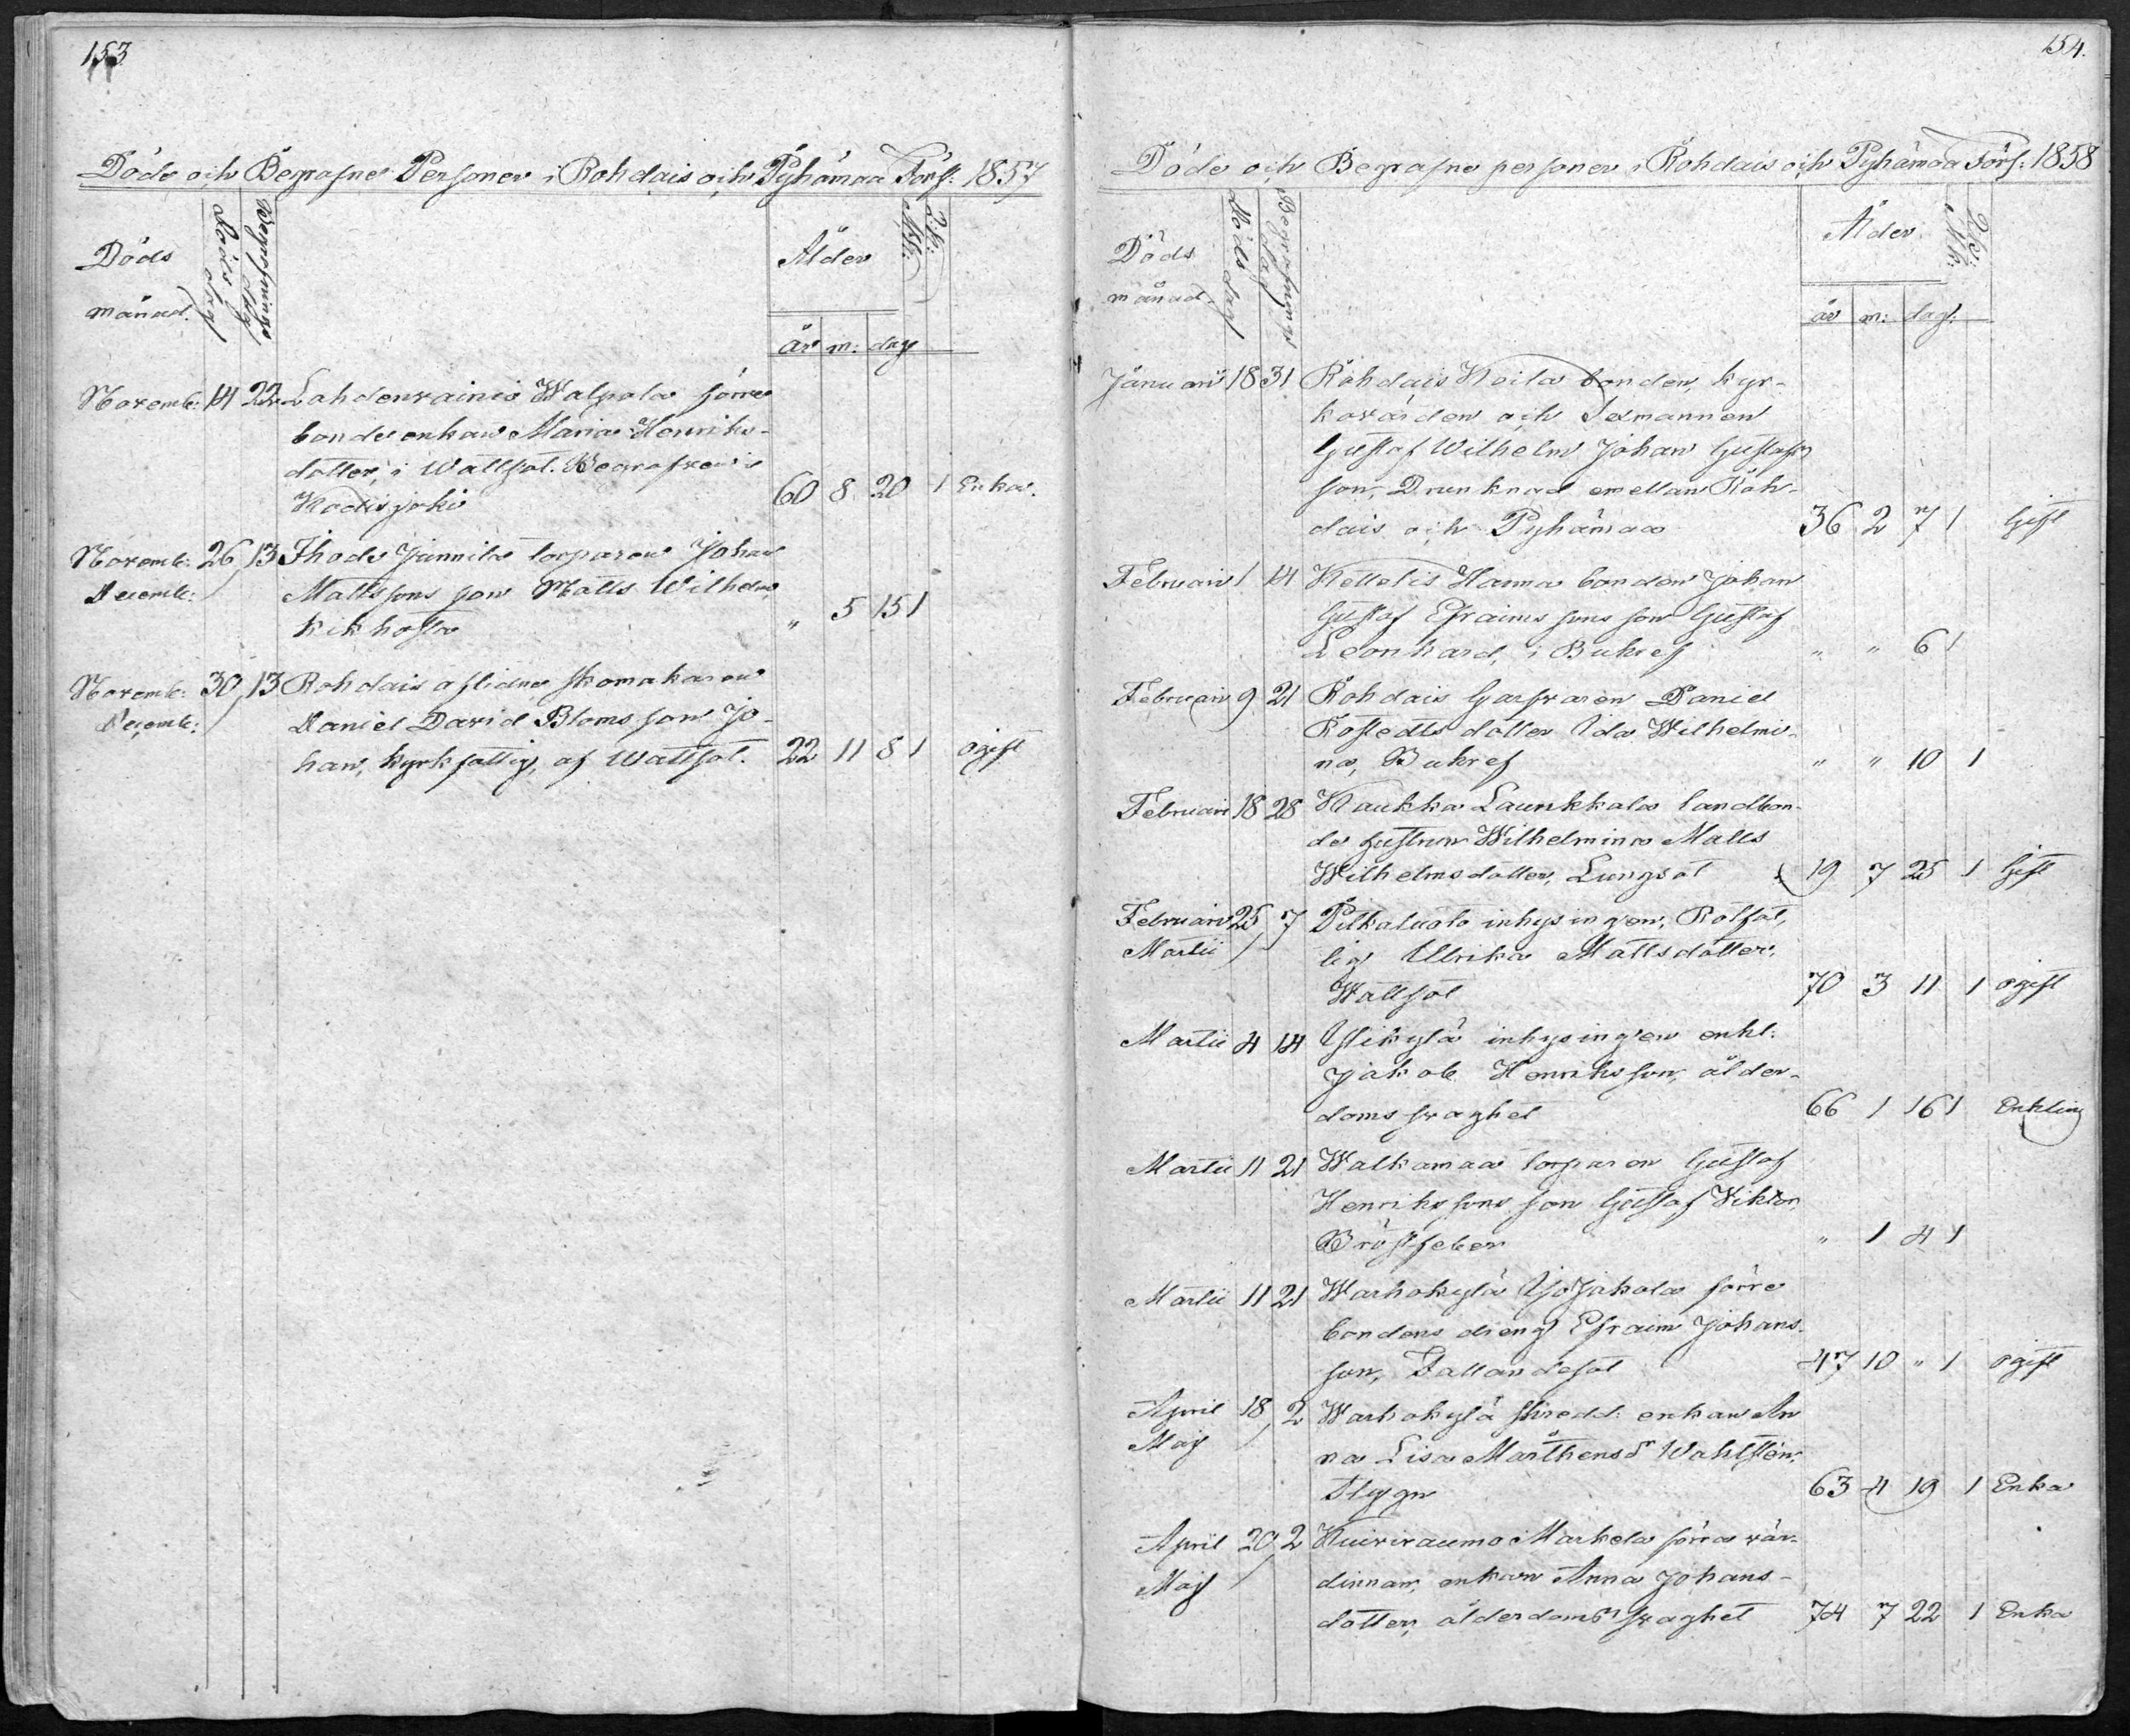 153
Döde och Begrafne Personer i Rohdais och Pyhämaa Förs: 1857
Döds månad. Döds dag Begrafnings dag Ålder Mk: Qk:
år m: dag
Novemb: 14 22 Lahdenvainio Walpola förre
bonde enkan Maria Henriks-
dotter, i Wattsot. Begrafven i
Kodisjoki 60 8 20 1 Enka.
Novemb: 26 13 Ihode Junnila torparen Johan
Decemb: Mattssons son Matts Wilhelm,
kikhosta " 5 15 1
Novemb: 30 13 Rohdais aflidne skomakaren
Decemb: Daniel David Bloms son Jo-
han, kyrkfattig, af Wattsot. 22 11 8 1 ogift
154.
Döde och Begrafne personer i Rohdais och Pyhämaa Förs: 1858
Döds månad. Döds dag Begrafnings dag Ålder Mk: Qk:
år m: dag:
Januari 18 31 Rohdais Keila bonden, kyr-
kovärden och Sexmannen
Gustaf Wilhelm Johan Gustafs
son, Drunknad emellan Roh-
dais och Pyhämaa 36 2 7 1 Gift
Februari 1 14 Kettelis Hanna bonden Johan
Gustaf Efraims sons son Gustaf
Leonhard, i Bukref " " 6 1
Februari 9 21 Rohdais Garfvaren Daniel
Rostedts dotter Ida Wilhelmi-
na, Bukref " " 10 1
Februari 18 28 Kaukka Launkkala landbon-
de hustrun Wilhelmina Matts
Wilhelmsdotter, Lungsot 19 7 25 1 Gift
Februari 25 7 Pitkäluoto inhysingen, Rotfat,
Martii lig Ulrika Mattsdotter,
Wattsot 70 3 11 1 ogift
Martii 4 14 Ylikylä inhysingen enkl:
Jakob Henriksson, ålder-
doms svaghet 66 1 16 1 Enkling
Martii 11 21 Walkamaa torparen Gustaf
Henrikssons son Gustaf Viktor,
Bröstfeber " 1 4 1
Martii 11 21 Warhokylä förre
bondens dreng Efraim Johans-
son, Fallandesot 47 10 " 1 ogift
April 18 2 Warhokylä skredd: enkan An
Maij na Lisa Marthens dr Wahlsten,
Stygn 63 4 19 1 Enka
April 20 2 Kuivirauma Markela förra vär-
Maij dinnan, enkan Anna Johans-
dotter, ålderdoms svaghet 74 7 22 1 Enka